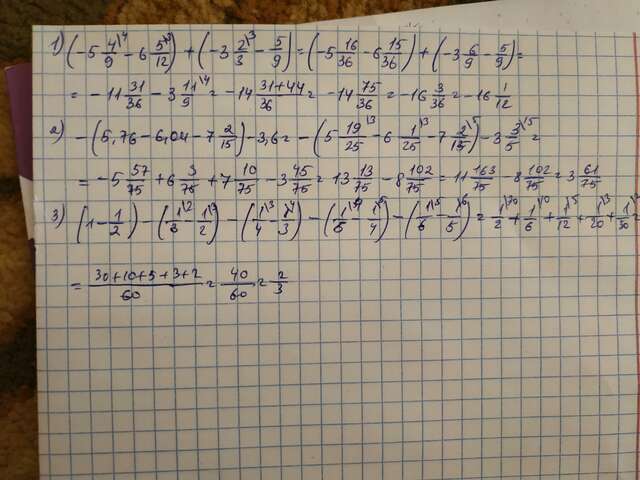 1) (-5 4/9\4 - 6 5/12\3) + (-3 2/3\3 - 5/9) = (-5 16/36 - 6 15/36) + (-3 6/9 - 5/9) =
= -11 31/36 - 3 11/9\4 = -14 31+44/36 = -14 75/36 = -16 3/36 = -16 1/12
2) -(5,76 - 6,04 - 7 2/15) - 3,6 = -(5 19/25\3 - 6 1/25\3 - 7 2/15\5) - 3 3/5\15 =
= -5 57/75 + 6 3/75 + 7 10/75 - 3 45/75 = 13 13/75 - 8 102/75 = 11 163/75 - 8 102/75 = 3 61/75
3) (1 - 1/2) - (1/3\2 - 1/2\3) - (1/4\3 - 1/3\4) - (1/5\4 - 1/4\5) - (1/6\5 - 1/5\6) = 1/2\30 + 1/6\10 + 1/12\5 + 1/20\3 + 1/30\2 =
= 30+10+5+3+2/60 = 40/60 = 2/3